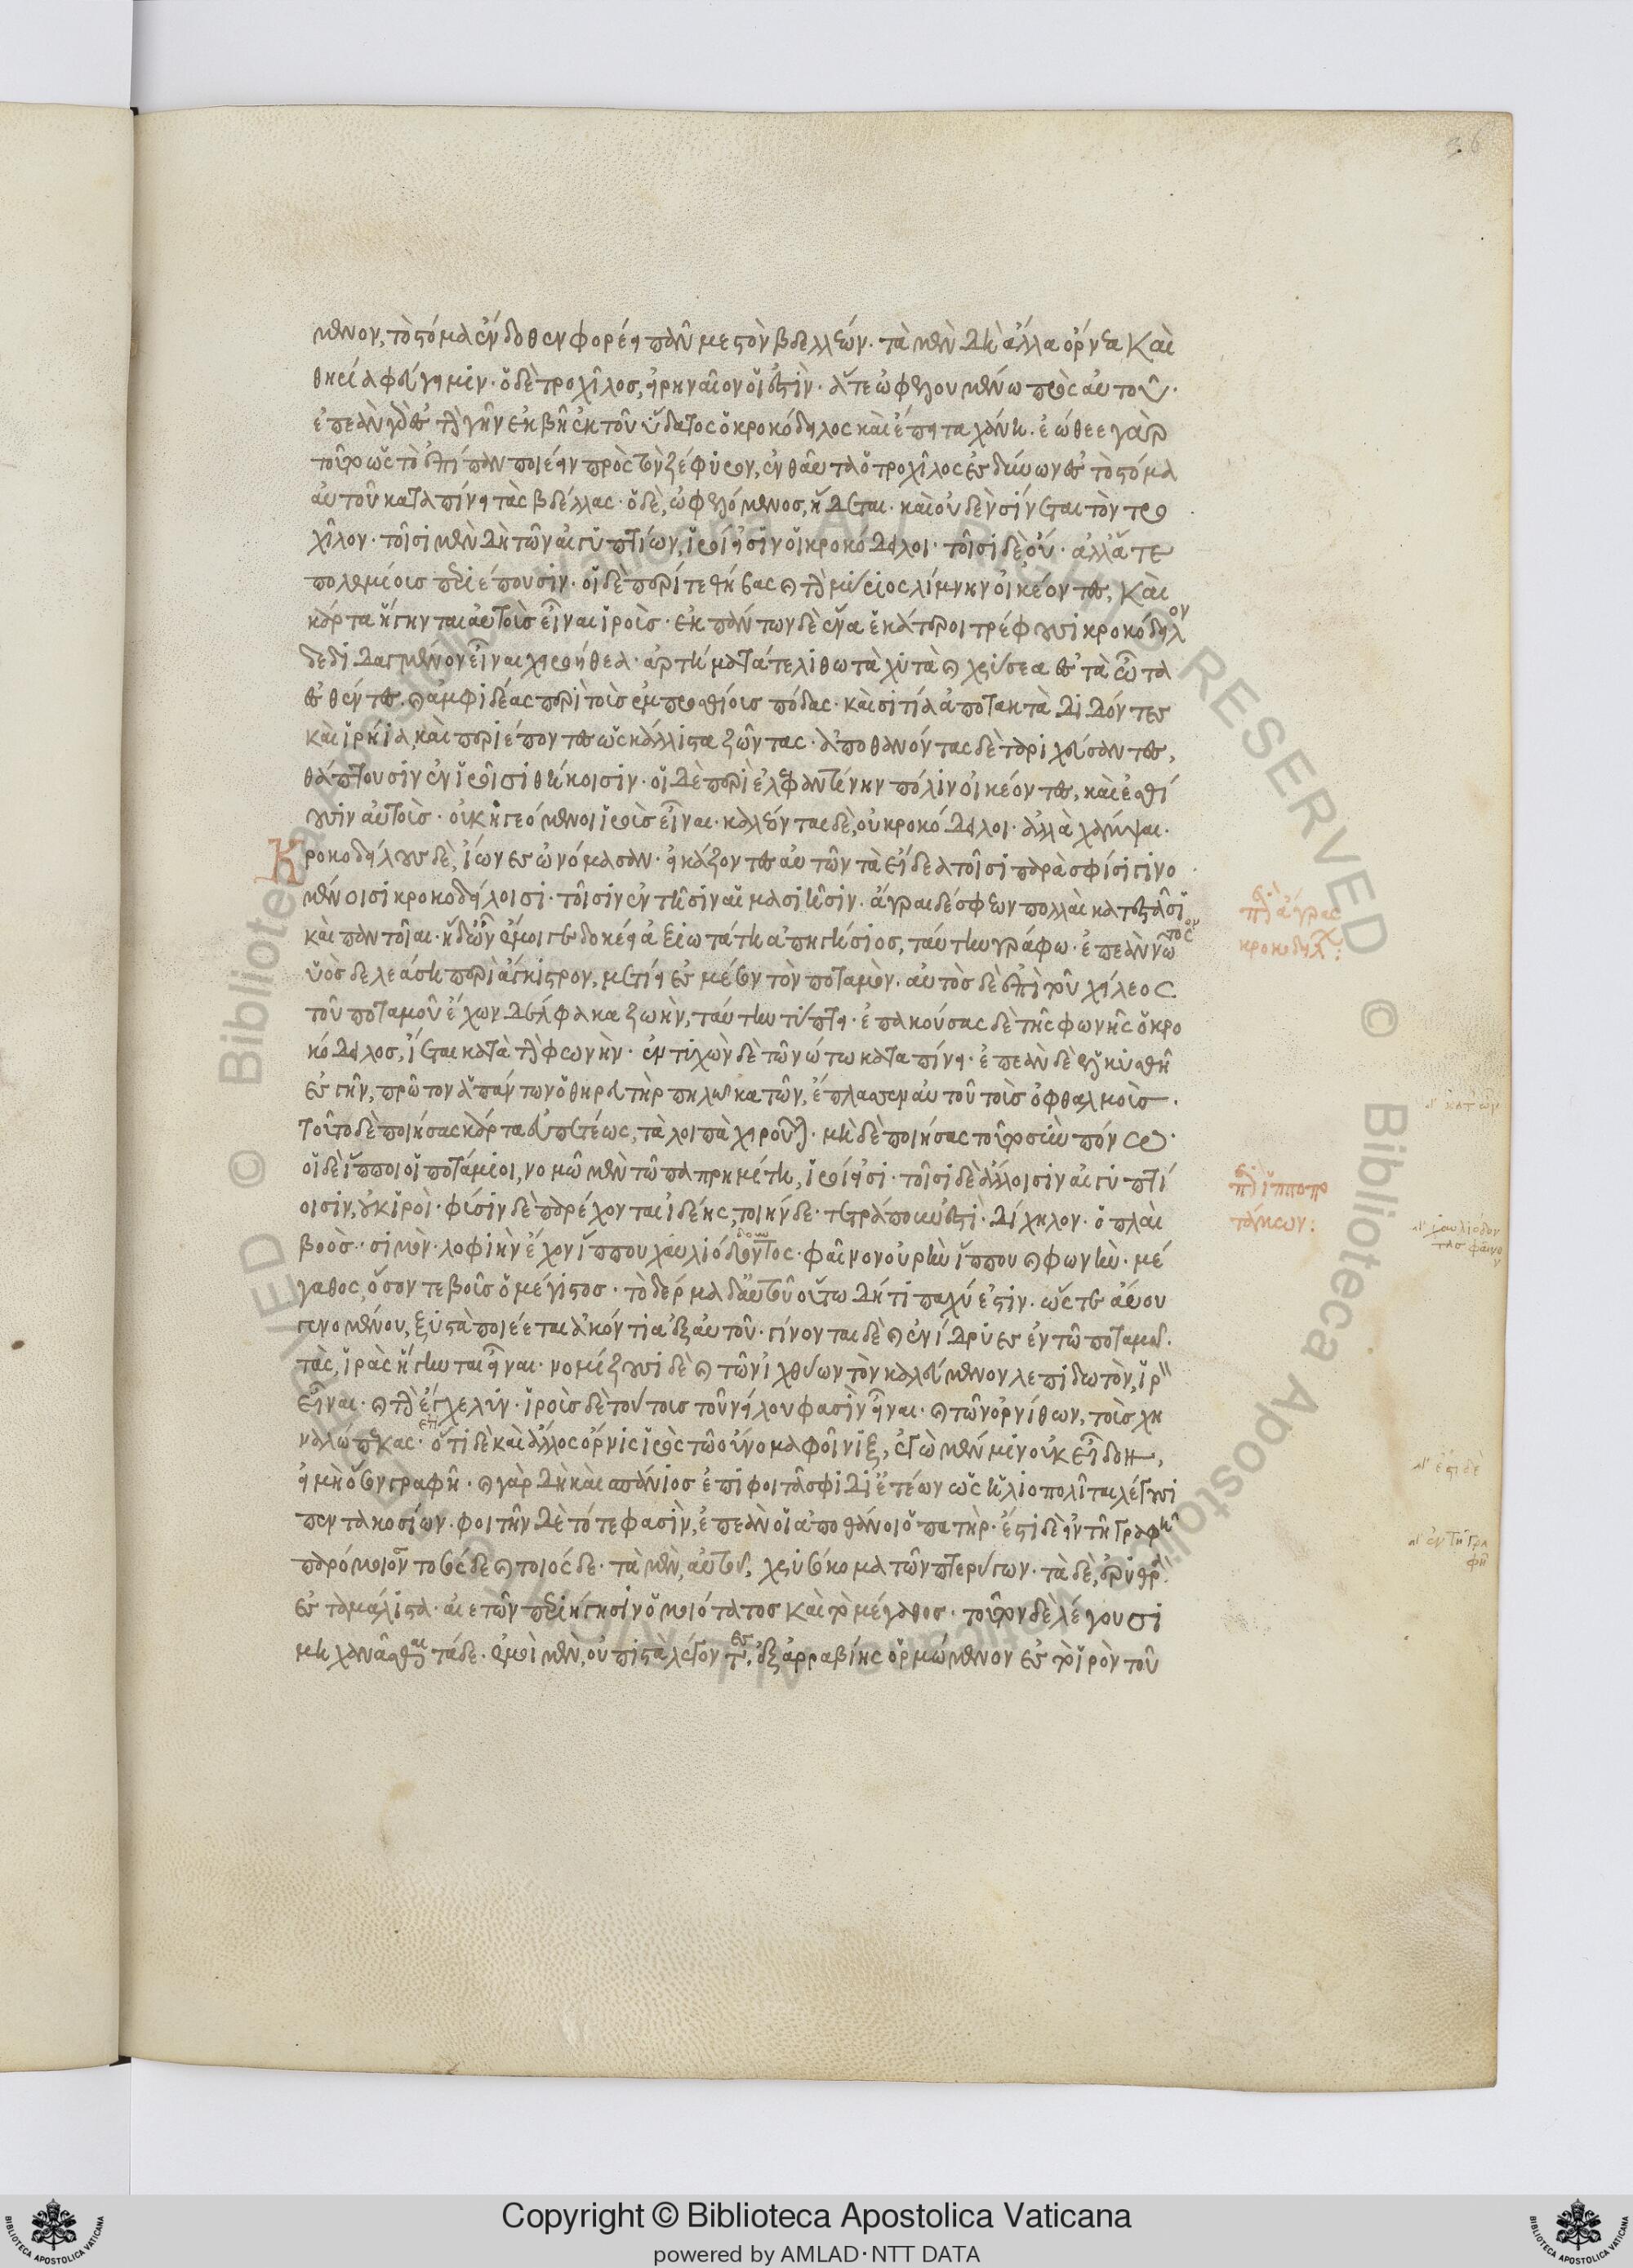 μενον, τὸ στόμα ἔνδοθεν φορέει πᾶν μεστὸν βδελλέων. τὰ μὲν δὴ ἄλλα ὄρνεα καὶ
θηρία φεύγει μιν. ὁ δὲ τροχῖλος, εἰρηναῖον οἵ ἐστὶν. ἅτε ὠφελουμένω πρὸς αὐτοῦ.
ἐπεὰν γὰρ ἐς τὴν γῆν ἐκβῆ ἐκ τοῦ ὕδατος ὁ κροκόδειλος καὶ ἔπειτα χάνη. ἐώθεε γὰρ
τοῦτο ὡς τὸ ἐπίπαν ποιέειν πρὸς τὸν ζέφυρον, ἐνθαῦτα ὁ τροχῖλος ἐσδύνων ἐς τὸ στόμα
αὐτοῦ καταπίνει τὰς βδέλλας. ὁ δὲ, ὠφελόμενος, ἥδεται. καὶ οὐδὲν σίνεται τὸν τρο
χῖλον. τοῖσι μὲν δὴ τῶν αἰγυπτίων, ἱροί εἰσιν οἱ κροκόδειλοι. τοῖσι δὲ οὔ. ἀλλ' ἅτε
πολεμίοις περιέπουσιν. οἱ δὲ περί τε θήβας καὶ τὴν μύριος λίμνην οἰκέοντες, καὶ
κάρτα ἥγηνται αὐτοὺς εἶναι ἱρούς. ἐκ πάντων δὲ ἕνα ἑκάτεροι τρέφουσι κροκόδειλον
δεδιδαγμένον εἶναι χειροήθεα. ἀρτήματά τε λίθινα χυτὰ καὶ χρύσεα ἐς τὰ ὦτα
ἐσθέντες. καὶ ἀμφιδέας περὶ τοὺς ἐμπροσθίους πόδας. καὶ σιτία ἀποτακτὰ διδόντες
καὶ ἱρήια, καὶ περιέποντες ὡς κάλλιστα ζῶντας. ἀποθανόντας δὲ ταριχεύσαντες,
θάπτουσιν ἐν ἱρῆσι θήκησιν. οἱ δὲ περὶ ἐλεφαντίνην πόλιν οἰκέοντες, καὶ ἐσθί
ουσιν αὐτούς. οὐκ ἡγεόμενοι ἱροὺς εἶναι. καλέονται δὲ, οὐ κροκόδειλοι. ἀλλὰ χάμψαι.
Κροκοδείλους δὲ, ἴωνες ὠνόμασαν. εἰκάζοντες αὐτῶν τὰ εἴδεα τοῖσι παρὰ σφίσι γινο
μένοισι κροκοδείλοισι. τοῖσιν ἐν τῆσιν αἱμασιῆσιν. ἄγραι δέ σφεων πολλαὶ κατεστᾶσι
καὶ παντοῖαι. ἣ δ' ὦν ἔμοιγε δοκέει ἀξιωτάτη ἀπηγήσιος, ταύτην γράφω. ἐπεὰν νῶτον
ὑὸς δελεάση περὶ ἄγκιστρον, μετίει ἐς μέσον τὸν ποταμόν. αὐτὸς δὲ ἐπὶ τοῦ χείλεος
τοῦ ποταμοῦ ἔχων δέλφακα ζωήν, ταύτην τύπτει. ἐπακούσας δὲ τῆς φωνῆς ὁ κρο
κόδειλος, ἵεται κατὰ τὴν φωνὴν. ἐντυχὼν δὲ τῶ νώτω καταπίνει. ἐπεὰν δὲ ἑλκυσθῆ
ἐς γῆν, πρῶτον ἁπάντων ὁ θηρευτὴρ πηλῶ κατῶν, ἔπλασεν αὐτοῦ τοὺς ὀφθαλμούς.
τοῦτο δὲ ποιήσας κάρτα εὐπετέως, τὰ λοιπὰ χειροῦται. μὴ δὲ ποιήσας τοῦτο σὺν πόνω.
οἱ δὲ ἵπποι οἱ ποτάμιοι, νομῶ μὲν τῶ παπρημίτη, ἱροί εἰσι. τοῖσι δὲ ἄλλοισιν αἰγυπτί
οισιν, οὐκ ἱροὶ. φύσιν δὲ παρέχονται ἰδέης, τοιήνδε. τετράπουν ἐστὶ. δίχηλον. ὁπλαὶ
βοός. σιμόν. λοφιὴν ἔχον ἵππου χαυλιόδοντος. φαῖνον οὐρὴν ἵππου καὶ φωνὴν. μέ
γαθος, ὅσον τε βοῦς ὁ μέγιστος. τὸ δέρμα δ' αὐτοῦ οὕτω δή τι παχύ ἐστιν. ὥστε αὔου
γινομένου, ξυστὰ ποιέεται ἀκόντια ἐξ αὐτοῦ. γίνονται δὲ καὶ ἐνύδριες ἐν τῶ ποταμῶ.
τὰς, ἱρὰς ἥγηνται εἶναι. νομίζουσι δὲ καὶ τῶν ἰχθύων τὸν καλεύμενον λεπιδωτὸν, ἱρὸν
εἶναι. καὶ τὴν ἔγχελυν. ἱροὺς δὲ τούτους τοῦ νείλου φασὶν εἶναι. καὶ τῶν ὀρνίθων, τοὺς χη
ναλώπεκας. ἔτι δὲ καὶ ἄλλος ὄρνις ἱρὸς τῶ οὔνομα φοῖνιξ, ἐγὼ μέν μιν οὐκ εἶδον,
εἰ μὴ ὅσον γραφῆ. καὶ γὰρ δὴ καὶ σπάνιος ἐπιφοιτᾶ σφι δι' ἐτέων ὡς ἡλιοπολῖται λέγουσι
πεντακοσίων. φοιτῆν δὲ τότε φασὶν, ἐπεάν οἱ ἀποθάνοι ὁ πατήρ. ἔστι δὲ εἰν τῆ γραφῆ
παρόμοιον τοσόσδε καὶ τοιόσδε. τὰ μὲν, αὐτοῦ, χρυσόκομα τῶν πτερύγων. τὰ δὲ, ἐρυθρὰ.
ἐς τὰ μάλιστα. αἰετῶ περιήγησιν ὁμοιότατος καὶ τὸ μέγαθος. τοῦτον δὲ λέγουσι
μηχανᾶσθαι τάδε. ἐμοὶ μὲν, οὐ πιστὰ λέγοντες. ἐξ ἀρραβίης ὁρμώμενον ἐς τὸ ἱρὸν τοῦ
περὶ ἄγρας
κροκοδείλ:
περὶ ἵπποπο
τάμων: